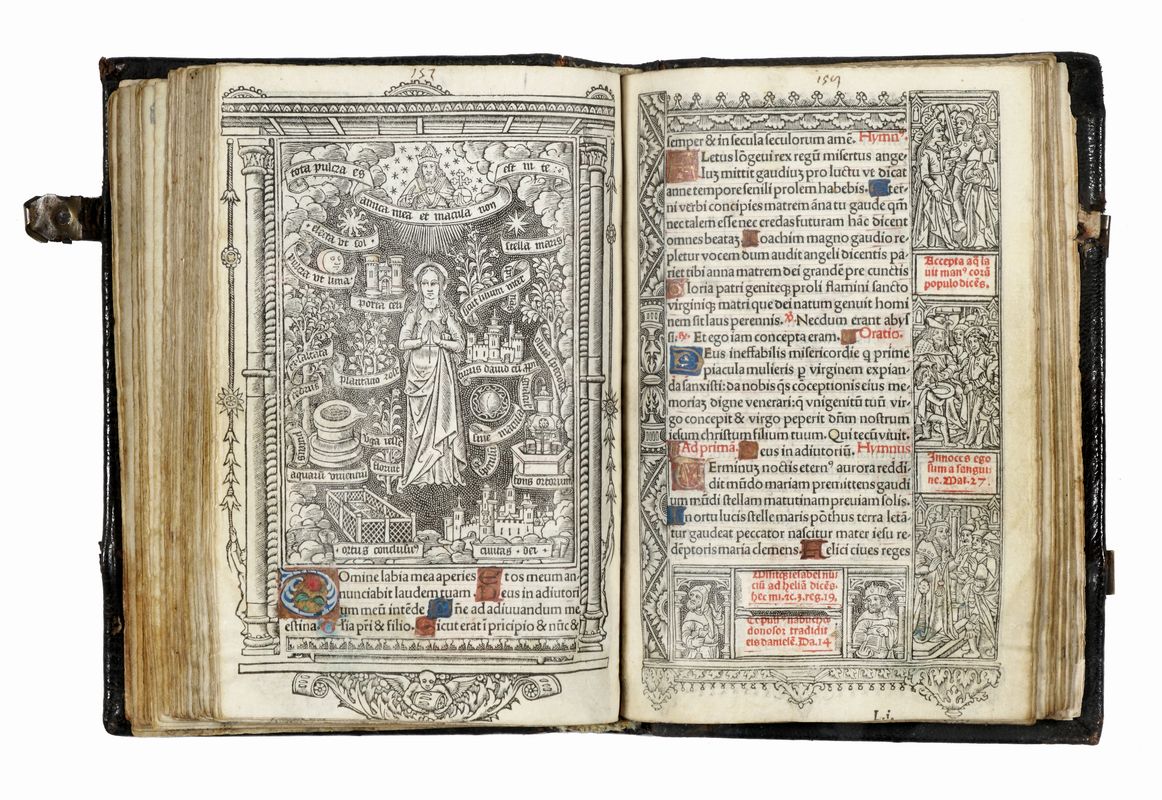 157
tota pulcra es
est in te
amica mea et macula non
electa vt sol
stella maris
pulcra vt luna
porta celi
sicut lilium inter
exaltata
cedrus
plantatio rose
turris david cū
virga iesse
floruit
puteus
aquarū viventiū
sine macula
speculū
fons ortorum
ortus conclusus
civitas dei
Omine labia mea aperies Et os meum an
nunciabit laudem tuam Deus in adiutori
um meū intēde Dn̄e ad adiuuandum me
estina. Glīa pr̄i & filio. Sicut erat ī pricipio & nūc &
159
emper & in secula seculorum amē. Hymnꝰ.
ALetus lōgeui rex regū misertus ange.
luꝫ mittit gaudiuꝫ pro luctu vt dicat
anne tempore senili prolem habebis. Eter-
ni verbi concipies matrem āna tu gaude qm̄
nec talem esse nec credas futuram hāc dicent
omnes beataꝫ Ioachim magno gaudio re-
pletur vocem dum audit angeli dicentis pa-
riet tibi anna matrem dei grandē pre cunctis
Gloria patri genitoqꝫ proli flamini sancto
virginiqꝫ matri que dei natum genuit homi
nem sit laus perennis. ℣. Necdum erant abys
si. ℟. Et ego iam concepta eram. Oratio.
DEus ineffabilis misericordie q prime
piacula mulieris ꝑ virginem expian-
da sanxisti: da nobis q̄s cōceptionis eius me-
moriaꝫ digne venerari: q̄ vnigenitū tuū vir-
go concepit & virgo peperit dn̄m nostrum
iesum christum filium tuum. Qui tecū viuit.
Ad primā. Deus in adiutoriū. Hymnus
VErminuꝫ noctis eternꝰ aurora reddi-
dit mūdo mariam premittens gaudi
um mūdi stellam matutinam preuiam solis.
In ortu lucis stelle maris pōthus terra letā-
tur gaudeat peccator nascitur mater iesu re-
dēptoris maria clemens. Felici ciues reges
Accepta aq̄ la
uit manꝰ corā
populo dicēs.
Innocēs ego
sum a sangui
ne. Mat. 27.
Misitqꝫ iesabel nū
ciū ad heliā dicēs.
hec mi. ꝛc. 3. reg. 19.
donosor tradidit
eis danielē. Da. 14
L.i.